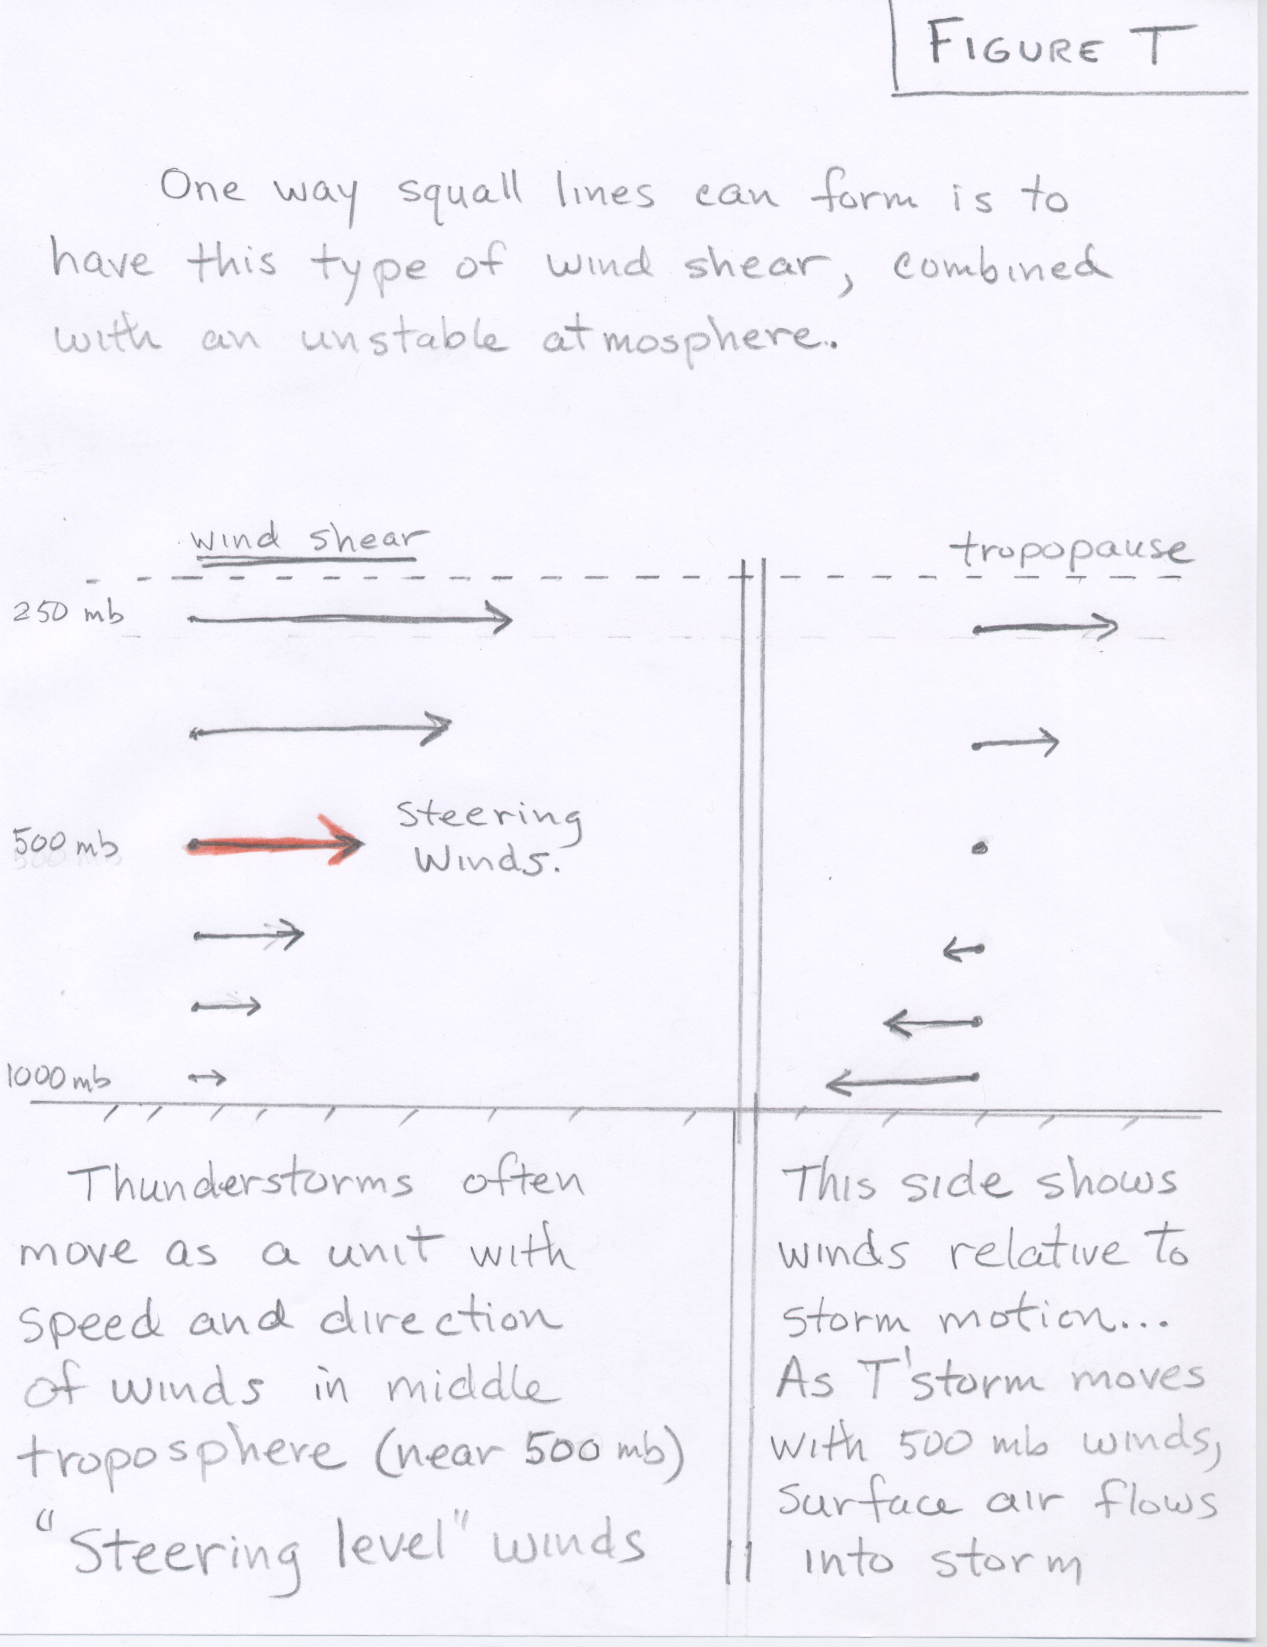 FIGURE T
One way squall lines can form is to
have this type of wind shear, combined
with an unstable atmosphere.
wind shear
tropopause
250 mb
Steering
Winds.
500 mb
1000 mb
Thunderstorms often
move as a unit with
speed and direction
of winds in middle
troposphere (near 500 mb)
"Steering level" winds
This side shows
winds relative to
storm motion...
As T'storm moves
with 500 mb winds,
surface air flows
into storm